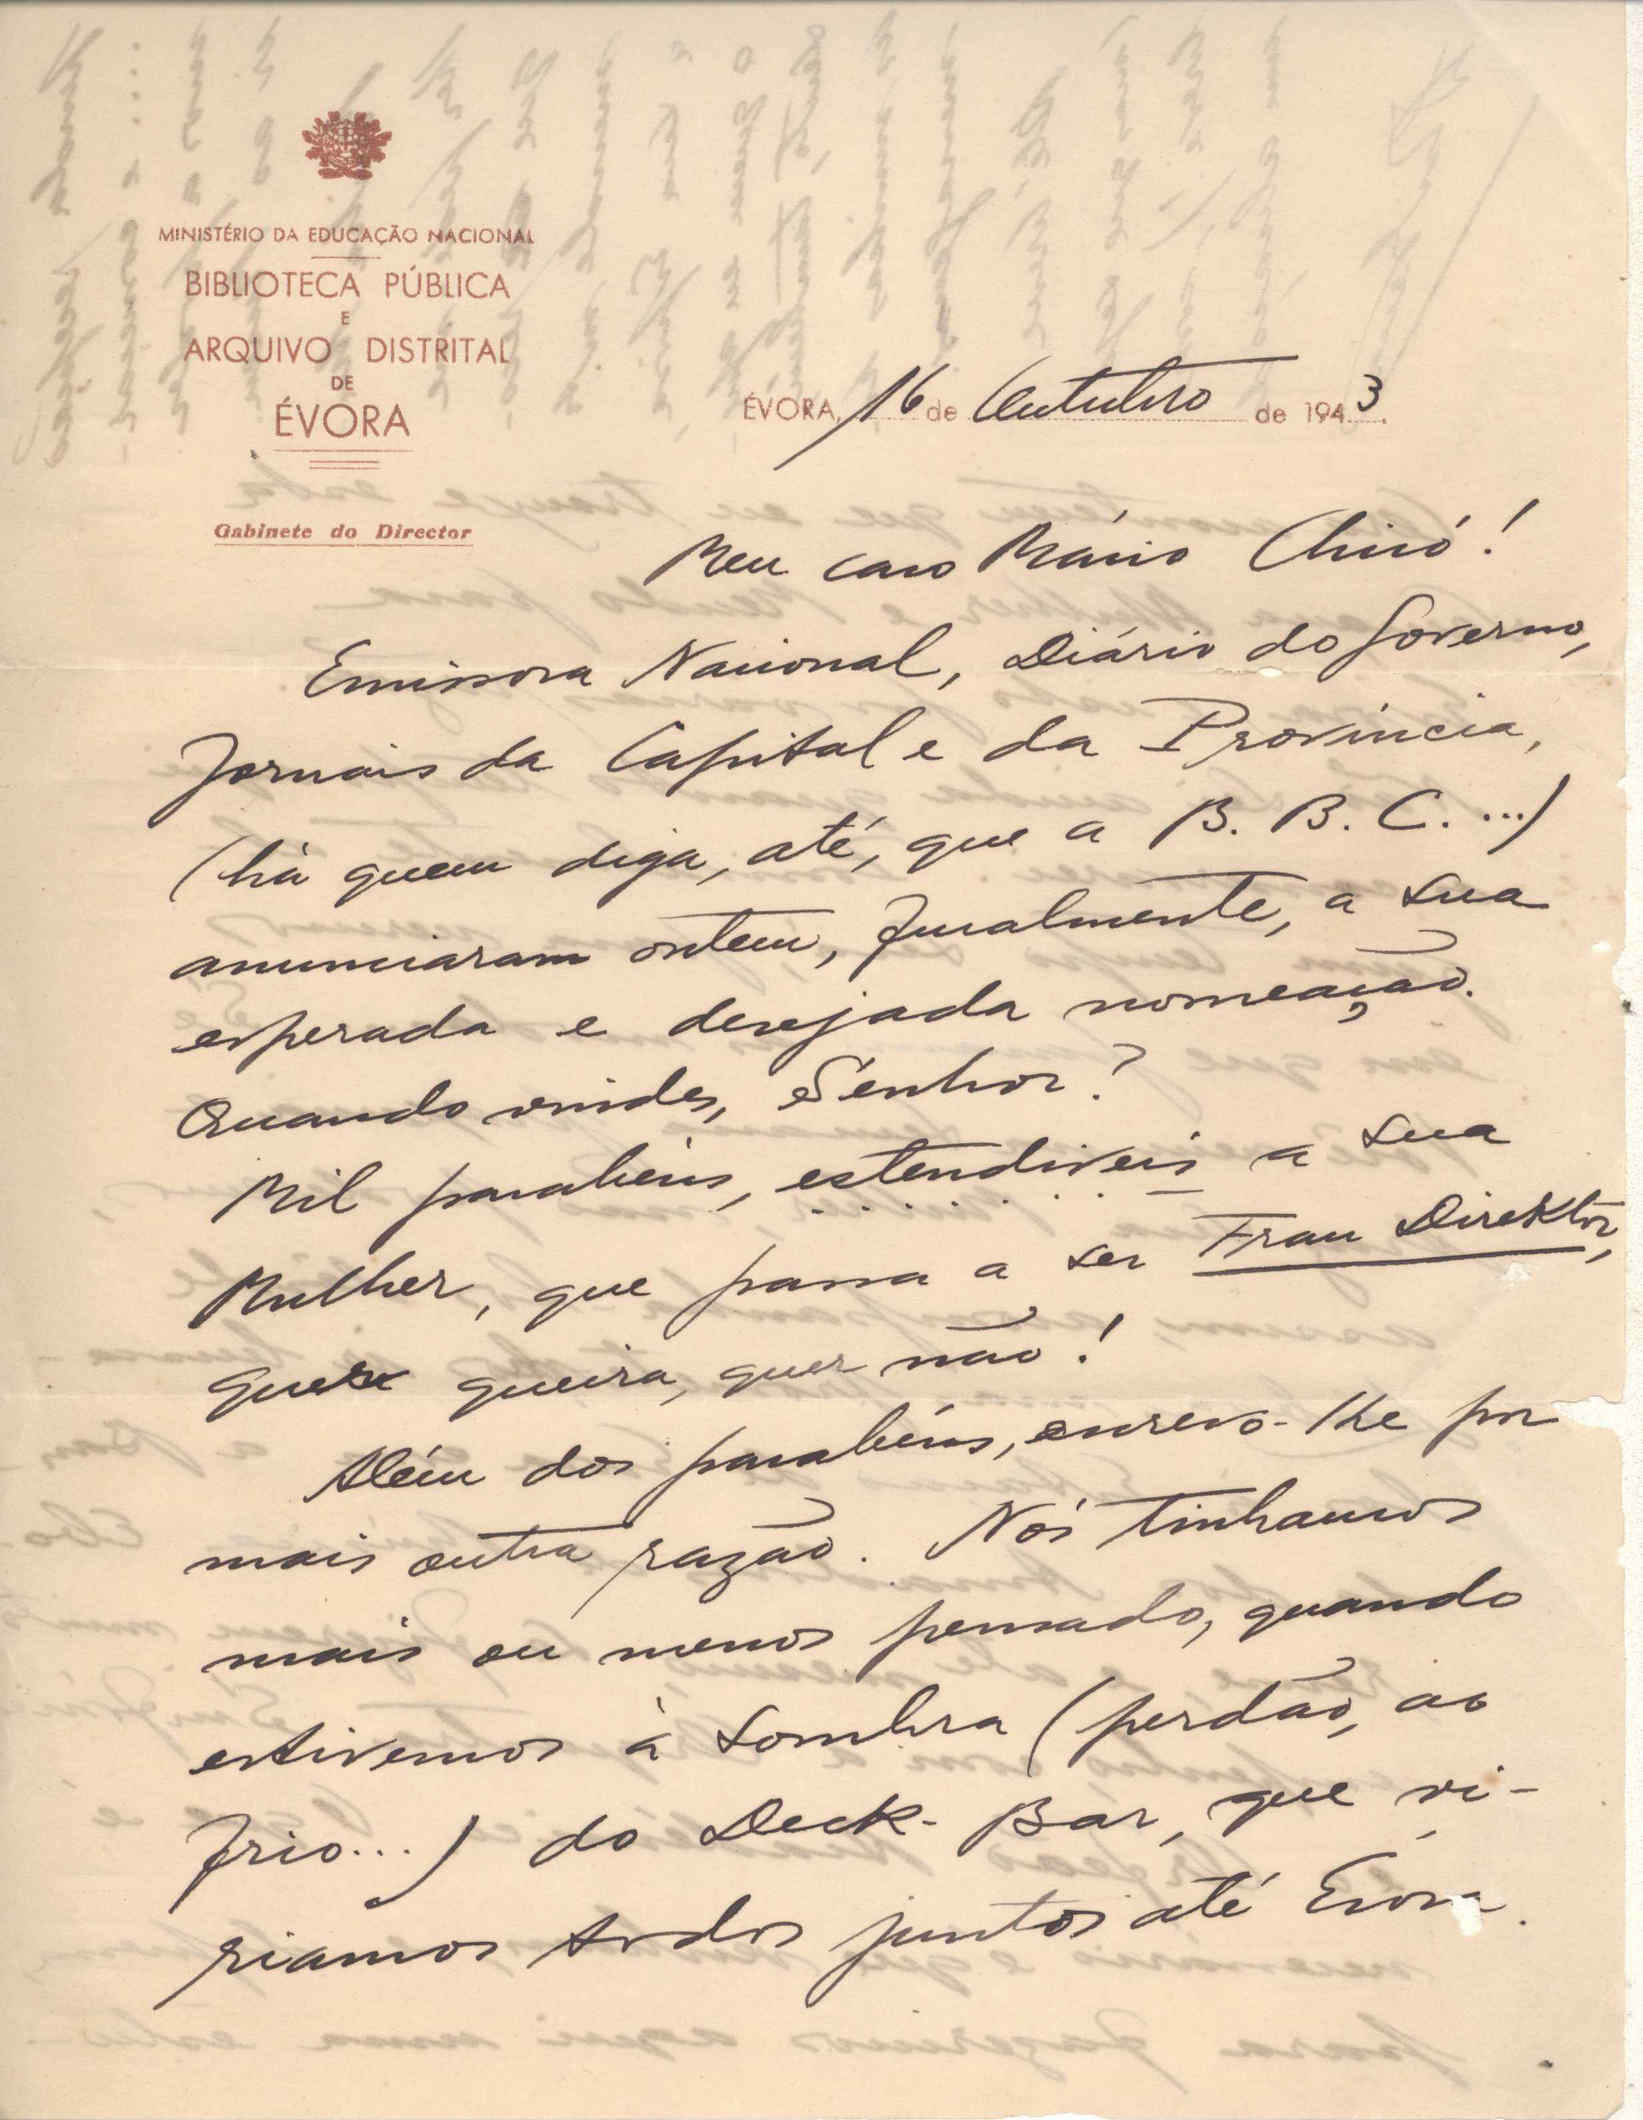 MINISTÉRIO DA EDUCAÇÃO NACIONAL
BIBLIOTECA PÚBLICA
E
ARQUIVO DISTRITAL
DE
ÉVORA
Gabinete do Director
ÉVORA, 16 de Outubro de 1943.
Meu caro Mário Chicó!
Emissora Nacional, Diário do Governo,
Jornais da Capital e da Província,
(há quem diga, até, que a B. B. C. ...)
anunciaram ontem, finalmente, a sua
esperada e desejada nomeação.
Quando vindes, Senhor?
Mil parabéns, estendiveis a sua
Mulher, que passa a ser Frau Direktor,
quer queira, quer não!
Além dos parabéns, escrevo-lhe por
mais outra razão. Nós tinhamos
mais ou menos pensado, quando
estivemos à sombra (perdão, ao
frio...) do Deck-Bar, que vi-
riamos todos juntos até Évora.